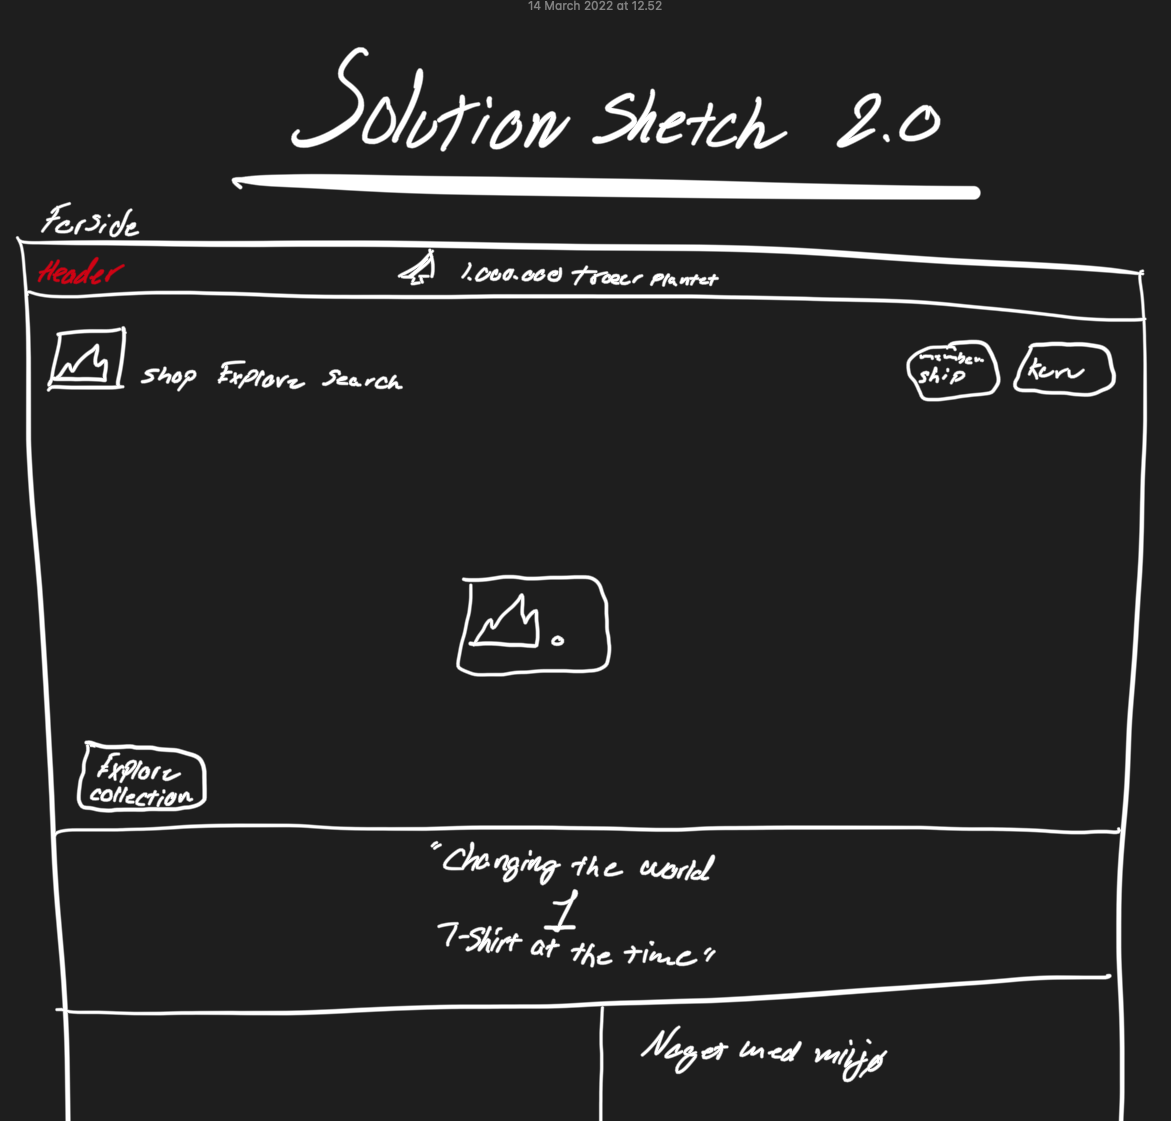 14 March 2022 at 12.52
Solution Sketch 2.0
Forside
Header
1.000.000 Træer Plantet
Shop Explore Search
member
ship
Kurv
Explore
collection
"Changing the world
1
T-Shirt at the time"
Noget med miljø